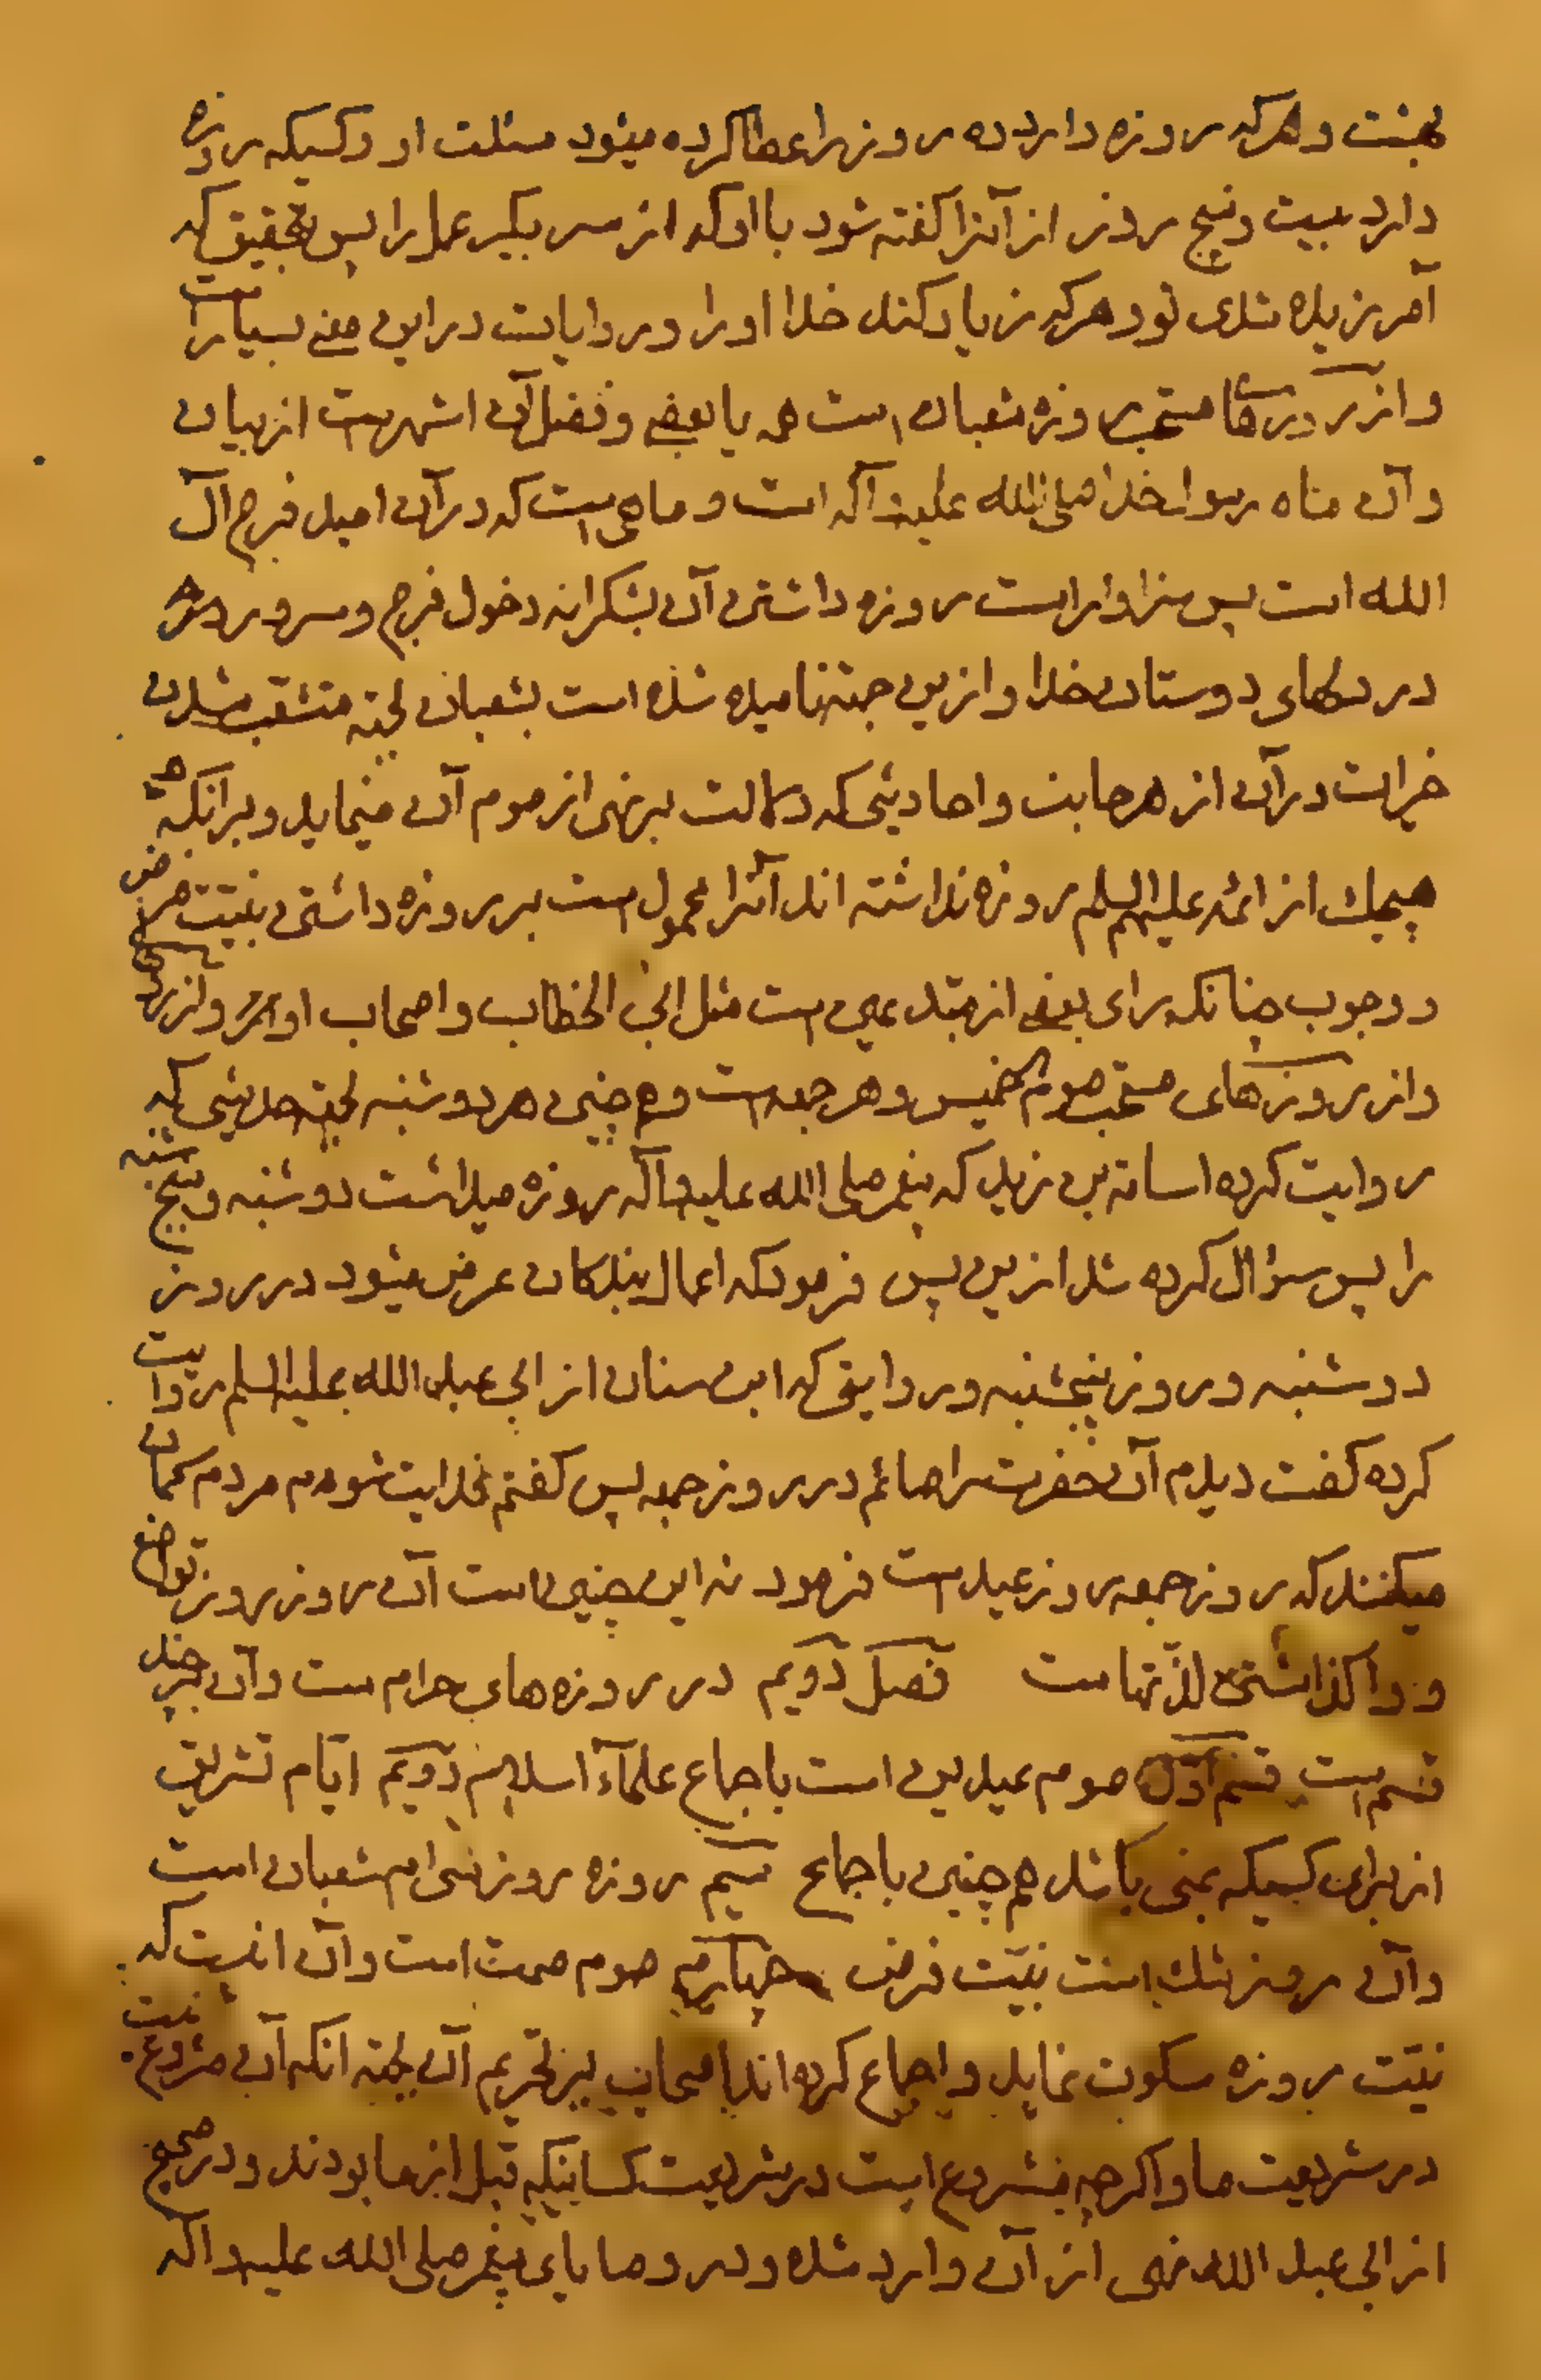 بهشت و هر که روزه دارد ده روز را عطا کرده میشود مسئلت او و کسیکه روزه
دارد بیست و پنج روز از آنرا کفته شود با او که از سر بکیر عمل را پس بتحقیق که
آمرزیده شدی تو و هر که زیاد کند خدا او را و روایات در این معنی بسیار است
و از روزهای مستحب روزه شعبان است همه یا بعضی و فضل آن اشهر است از بیان
و آن ماه رسول خدا صلی الله علیه و آله است و ماهی است که در آن امید فرج آل
الله است پس سزاوار است روزه داشتن آن بشکرانه دخول فرج و سرور
در دلهای دوستان خدا و ازین جهة نامیده شده است بشعبان لجهة متشعب شدن
خیرات در آن از هر جانب و احادیثی که دلالت بر نهی از صوم آن مینماید و بر انکه
هیچیك از ائمه علیهم السلم روزه نداشته اند آنرا محمول است بر روزه داشتن بنیت فرض
و وجوب چنانکه رای بعضی از مبتدعین است مثل ابی الخطاب و اصحاب او
و از روزهای مستحب صوم الخمیس و هر جمعه است و هم چنین هر دوشنبه لجهة حدیثی که
روایت کرده اسامة بن زید که پیغمبر صلی الله علیه و آله روزه میداشت دوشنبه و پنجشنبه
را پس سؤال کرده شد ازین پس فرمود که اعمال بندکان عرض میشود در روز
دوشنبه و روز پنجشنبه و روایتی که ابن سنان از ابی عبد الله علیه السلم روایت
کرده کفت دیدم آن حضرت را صائم در روز جمعه پس کفتم فدایت شوم مردم کمان
میکنند که روز جمعه روز عید است فرمود نه این چنین است آن روز روز تواضع
و وا کذاشتن لذتهاست فصل دویم در روزه های حرام است و آن چند
قسم است قسم اول صوم عیدین است باجماع علمآء اسلام دویم ایام تشریق
از برای کسیکه بمنی باشد هم چنین باجماع سیم روزه روز سی ام شعبان است
و آن روز شك است بنیت فرض چهارم صوم صمت است و آن انست که
نیت روزه سکوت نماید و اجماع کرده اند اصحاب بر تحریم آن بجهة انکه آن مشروع نیست
در شریعت ما و اکرچه مشروع است در شریعت کسانیکه قبل از ما بودند و در صحیح
از ابی عبد الله نهی از آن وارد شده و در وصایای پیغمبر صلی الله علیه و آله